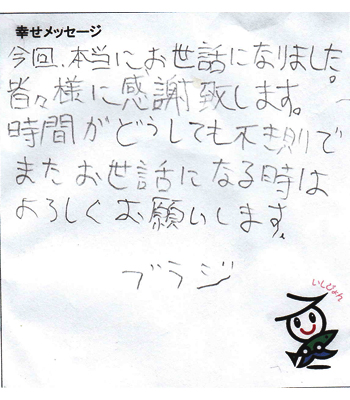 幸せメッセージ
今回、本当にお世話になりました。
皆々様に感謝致します。
時間がどうしても不き則で
またお世話になる時は
よろしくお願いします。
ブラジ
いしぴょん